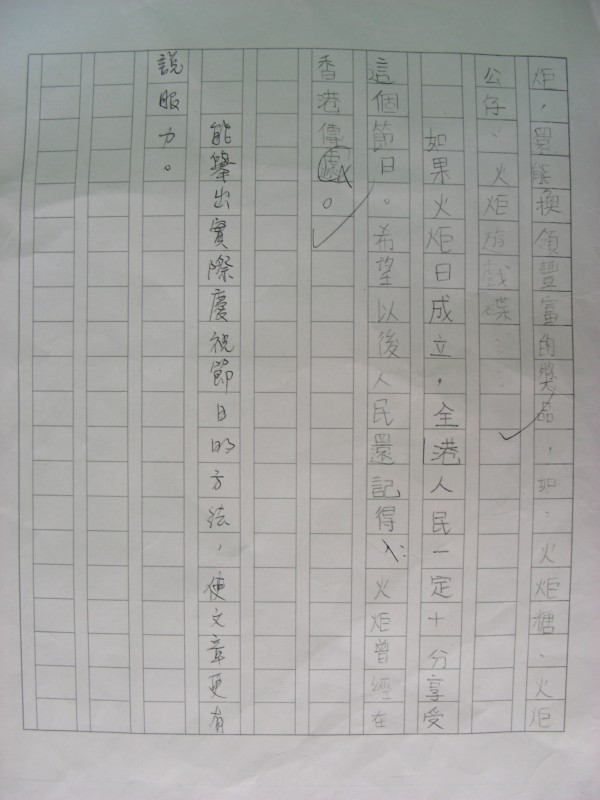 炬，還能換領豐富的獎品，如：火炬糖、火炬
公仔、火炬遊戲碟……
如果火炬日成立，全港人民一定十分享受
這個節日。希望以後人民還記得：火炬曾經在
香港傳遞。
能舉出實際慶祝節日的方法，使文章更有
說服力。